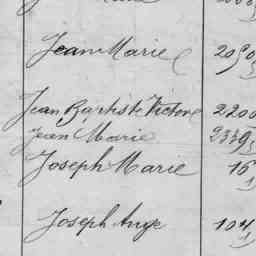 Jean Marie 2090
Jean Baptiste Victor 2200
Jean Marie 2339
Joseph Marie 16
Joseph Ange 104